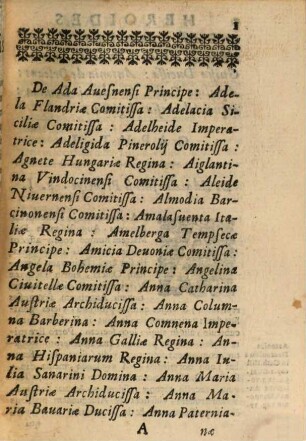 1
De Ada Auesnensi Principe: Ade-
la Flandriæ Comitissa: Adelacia Si-
ciliæ Comitissa: Adelheide Impera-
trice: Adeligida Pinerolij Comitissa:
Agnete Hungariæ Regina: Aiglanti-
na Vindocinensi Comitissa: Aleide
Niuernensi Comitissa: Almodia Bar-
cinonensi Comitissa: Amalasuenta Ita-
liæ Regina: Amelberga Tempsecæ
Principe: Amicia Deuoniæ Comitissa:
Angela Bohemiæ Principe: Angelina
Ciuitellæ Comitissa: Anna Catharina
Austriæ Archiducissa: Anna Colum-
na Barberina: Anna Comnena Impe-
ratrice: Anna Galliæ Regina: An-
na Hispaniarum Regina: Anna Iu-
lia Sanarini Domina: Anna Maria
Austriæ Archiducissa: Anna Ma-
ria Bauariæ Ducissa: Anna Paternia-
A næ